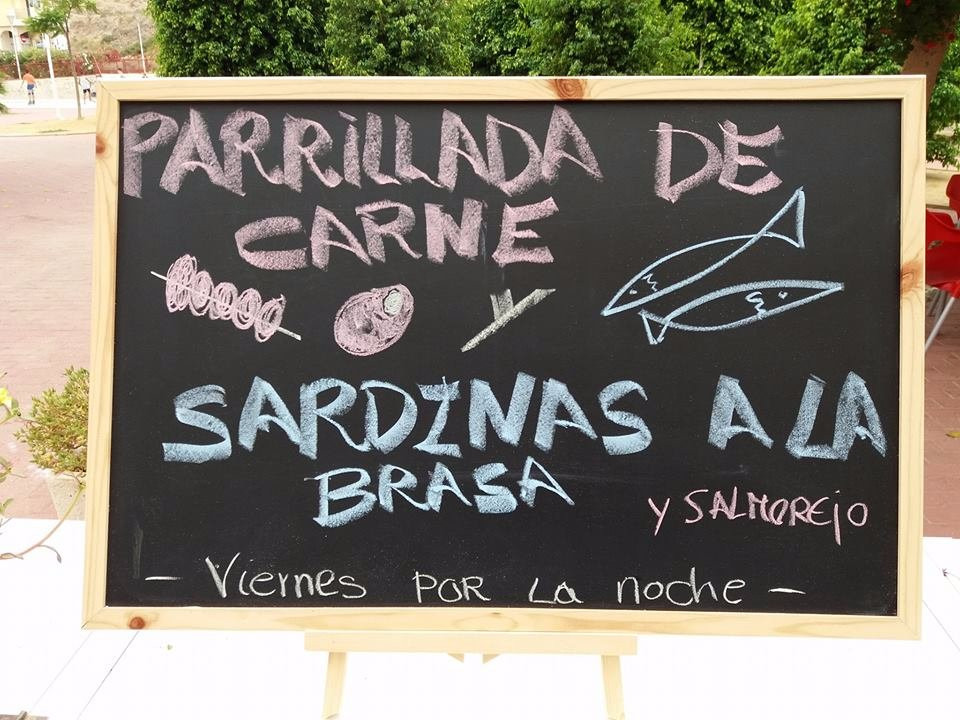 PARRILLADA DE
CARNE
Y
SARDINAS A LA
BRASA
Y SALMOREJO
- Viernes POR LA noche -